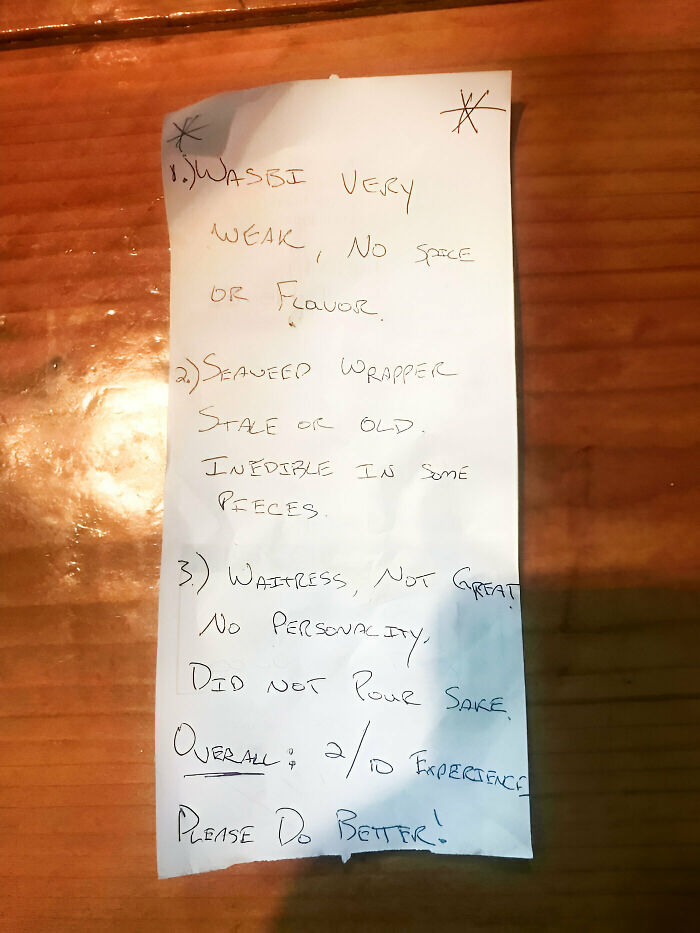 1.) WASBI VERY
WEAK, NO SPICE
OR FLAVOR.
2.) SEAWEED WRAPPER
STALE OR OLD.
INEDIBLE IN SOME
PIECES.
3.) WAITRESS, NOT GREAT!
NO PERSONALITY,
DID NOT POUR SAKE.
OVERALL: 2/10 EXPERIENCE
PLEASE DO BETTER!